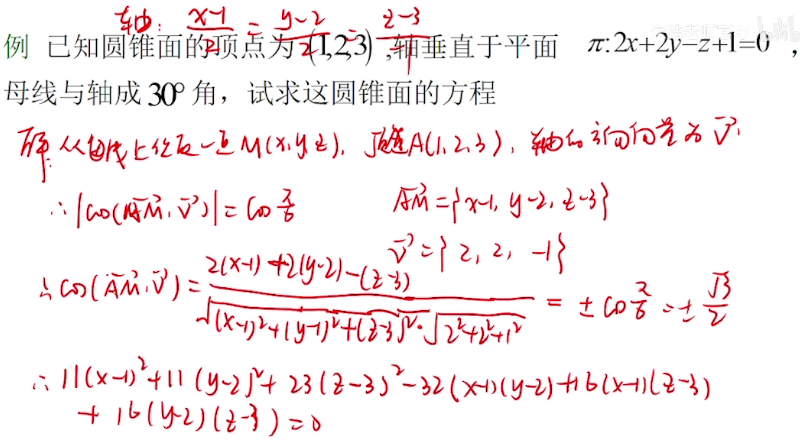 轴: (x-1)/2 = (y-2)/2 = (z-3)/-1
例 已知圆锥面的顶点为(1,2,3),轴垂直于平面 π:2x+2y-z+1=0 ,
母线与轴成30°角,试求这圆锥面的方程
解: 从母线上任取一点M(x,y,z), 顶点A(1,2,3), 轴的方向向量为 v⃗,
∴|cos(AM⃗, v⃗)| = cos π/6 AM⃗={x-1, y-2, z-3}
v⃗={2, 2, -1}
∴cos(AM⃗, v⃗) = (2(x-1)+2(y-2)-(z-3)) / (√((x-1)²+(y-1)²+(z-3)²)·√(2²+2²+1²)) = ±cos π/6 = ±√3/2
∴ 11(x-1)²+11(y-2)²+23(z-3)²-32(x-1)(y-2)+16(x-1)(z-3)
+16(y-2)(z-3)=0